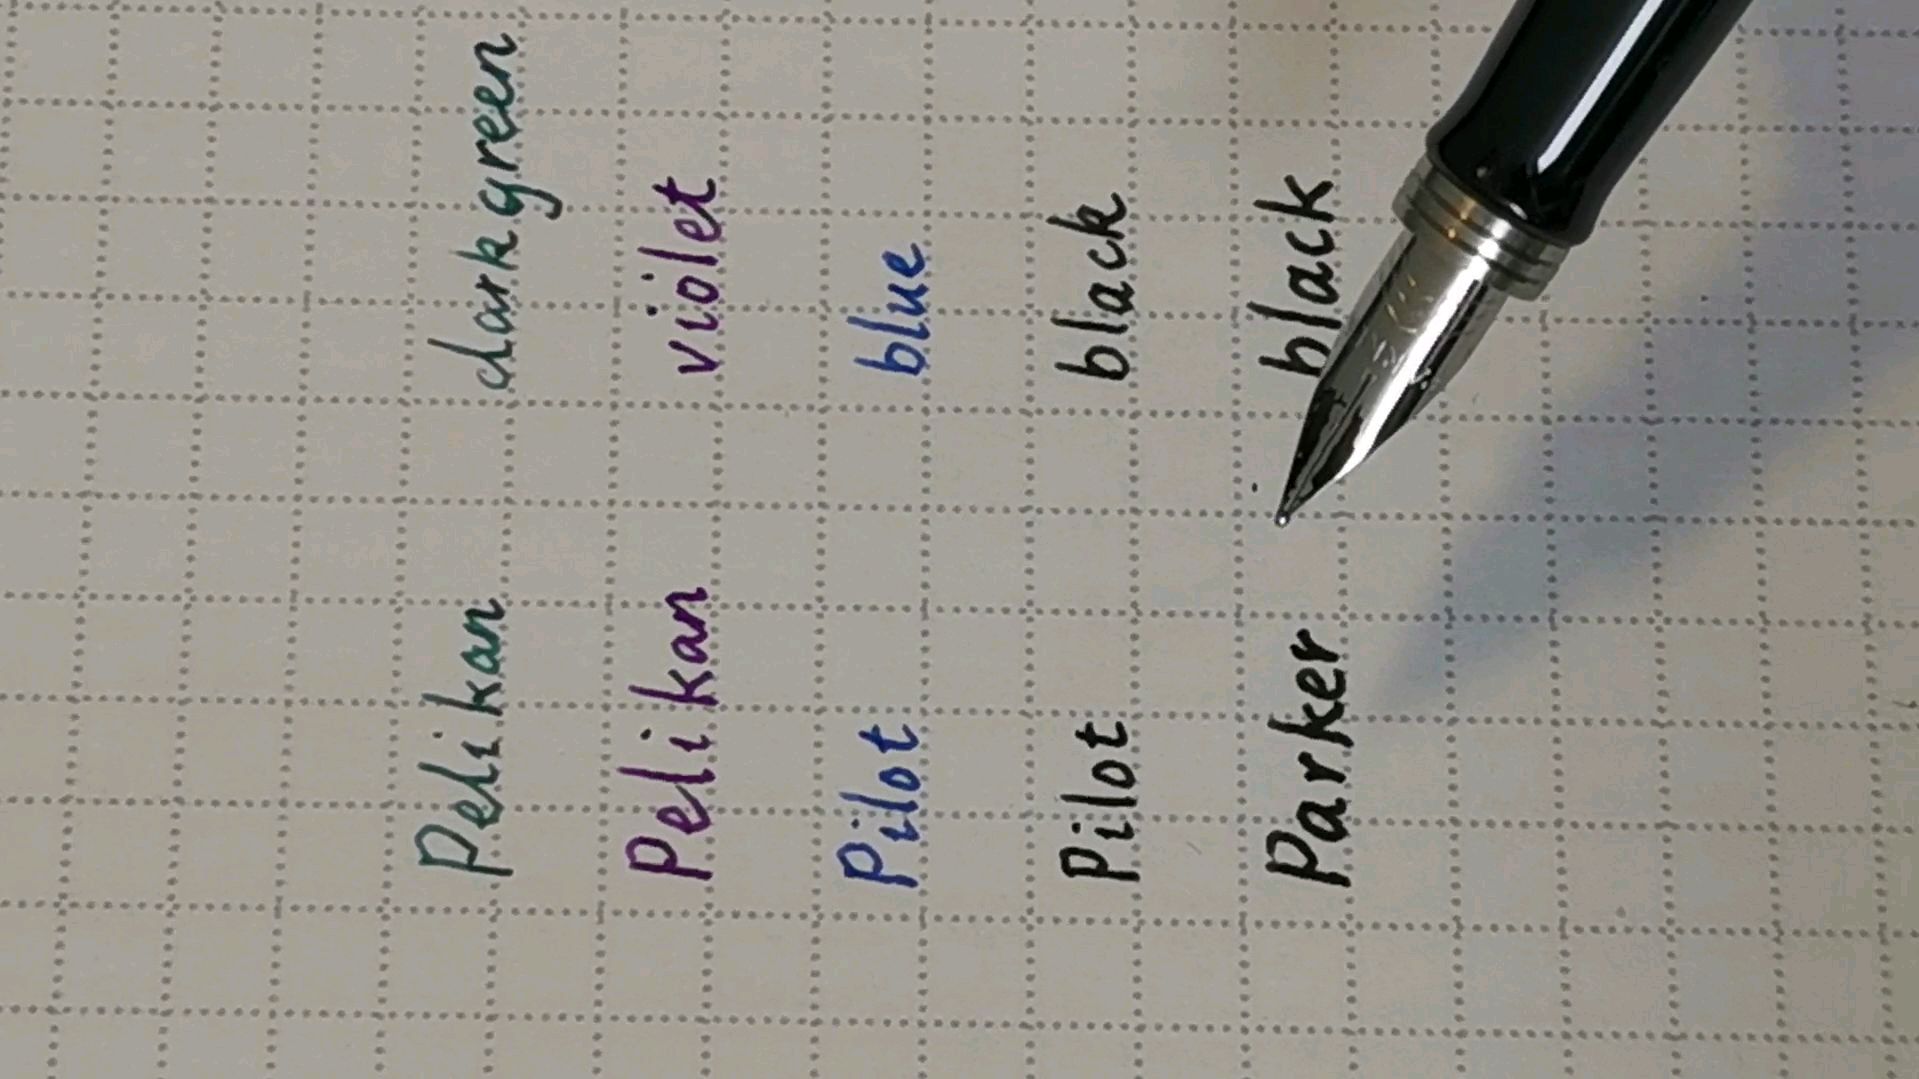 Pelikan dark green
Pelikan violet
Pilot blue
Pilot black
Parker black